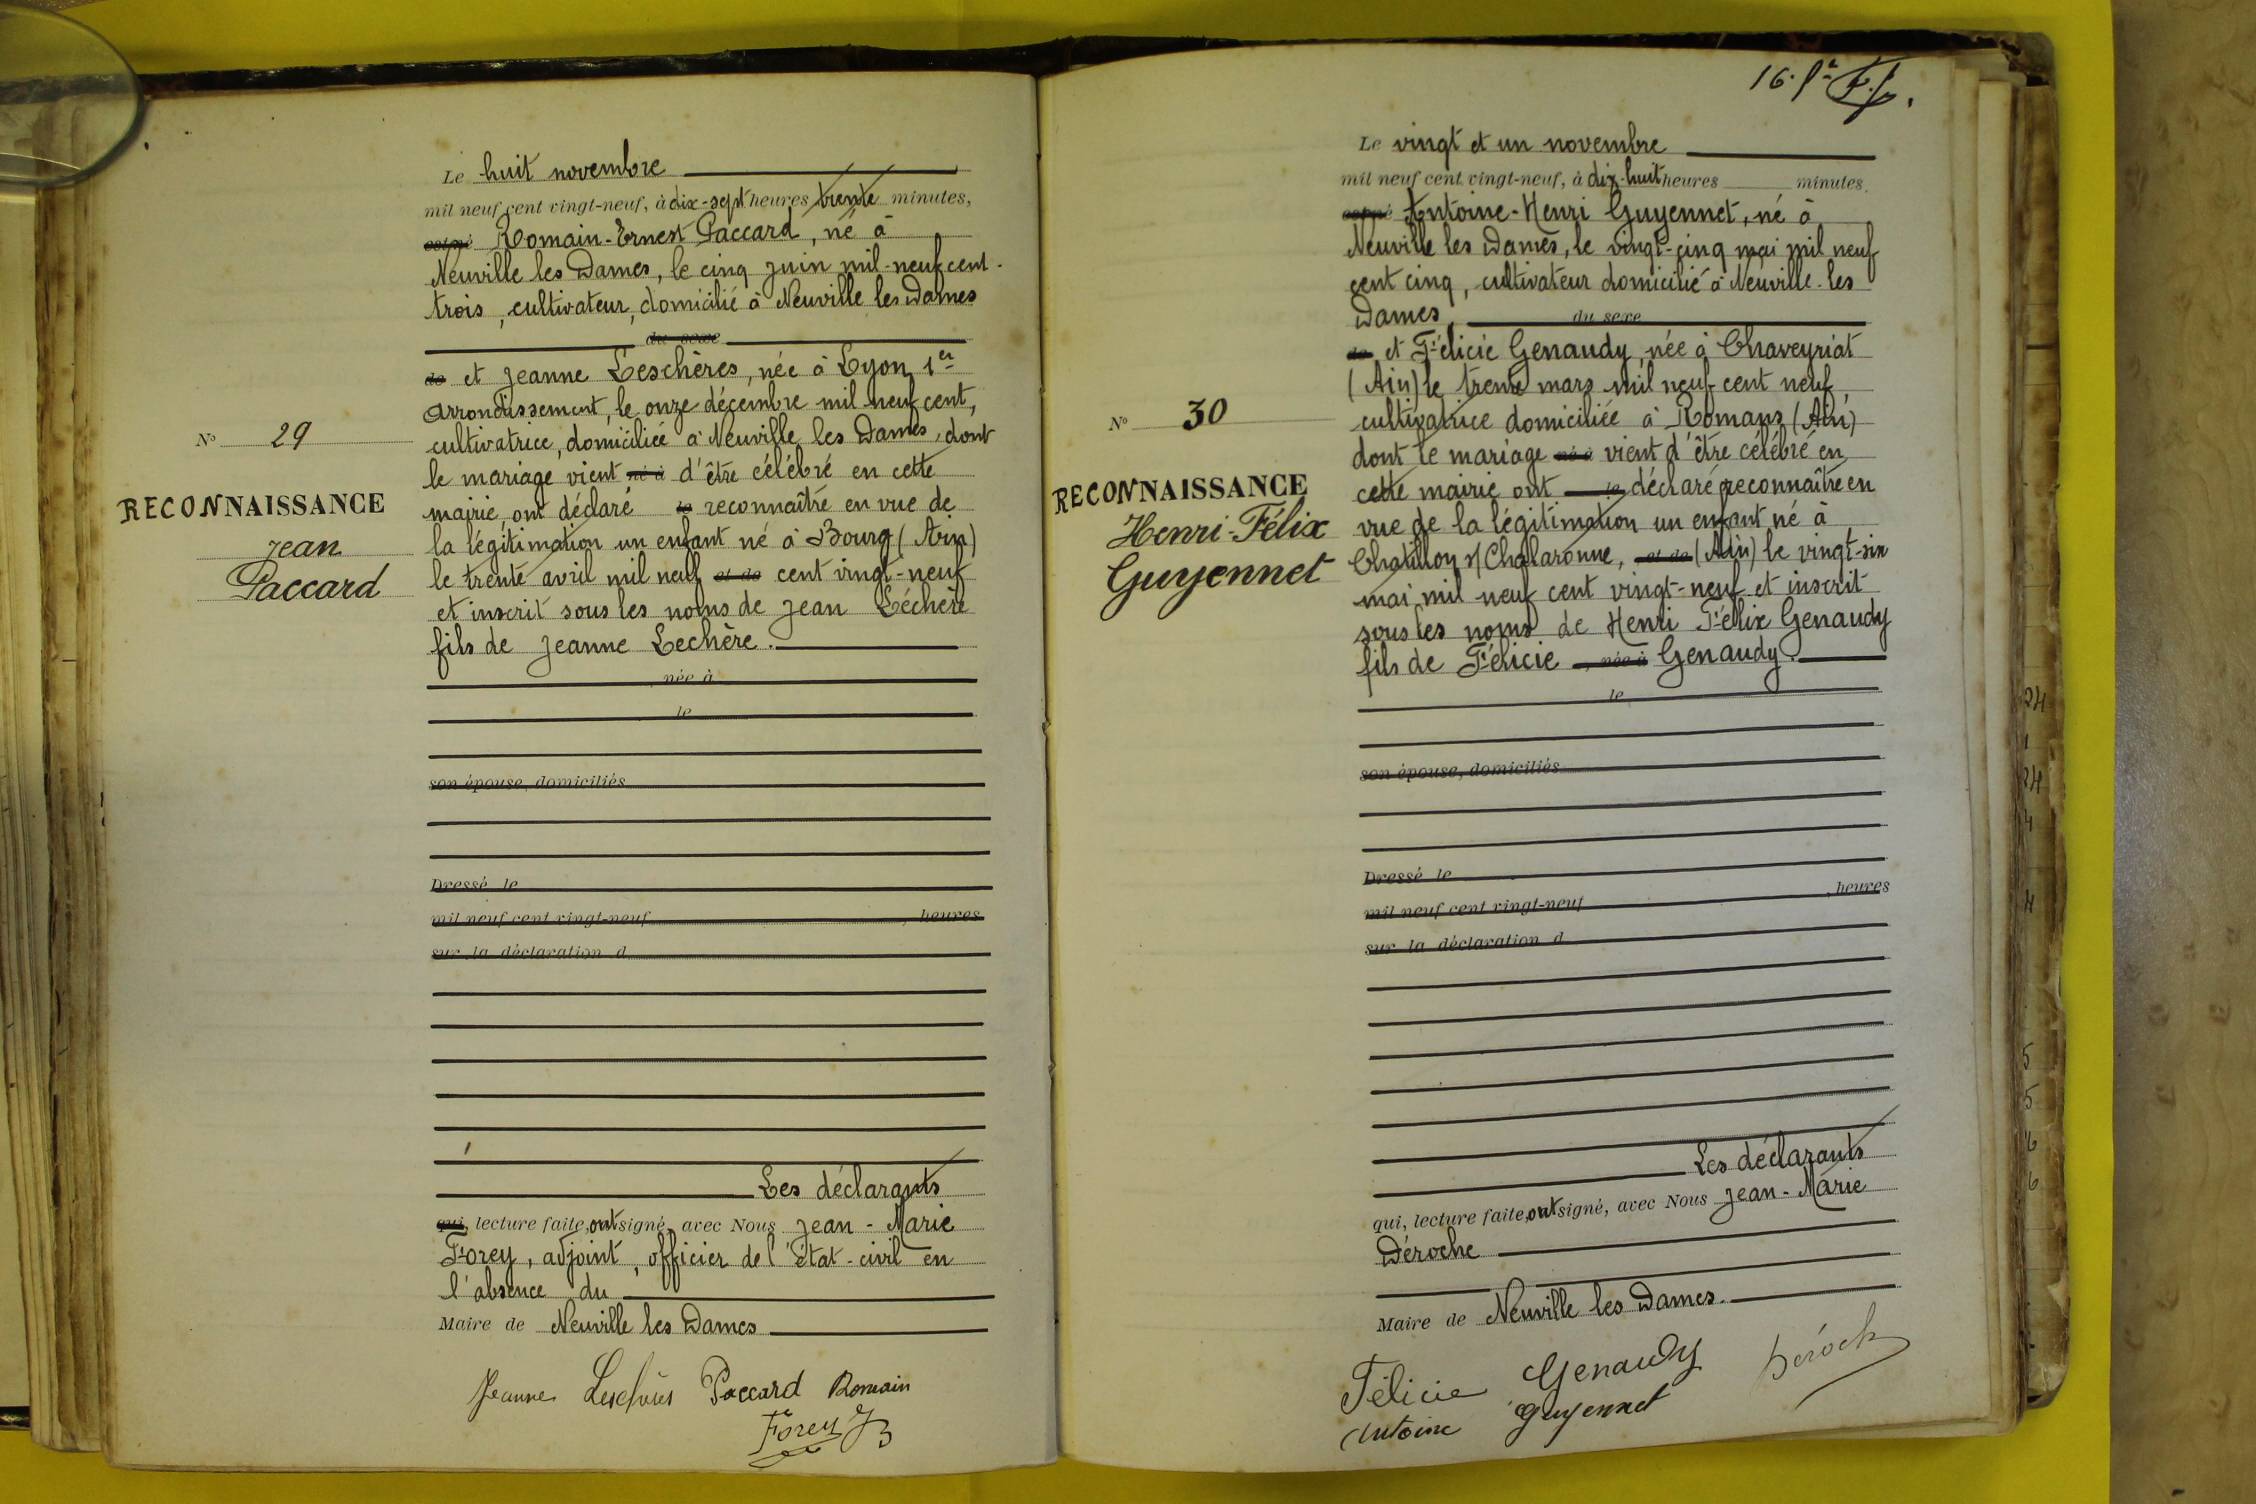 Le huit novembre
mil neuf cent vingt-neuf, à dix-sept heures trente minutes,
Romain-Ernest Paccard, né à
Neuville les Dames, le cinq juin mil-neuf cent-
trois, cultivateur, domicilié à Neuville les Dames
du sexe
de et Jeanne Leschères, née à Lyon 1er
Arrondissement, le onze décembre mil neuf cent,
cultivatrice, domiciliée à Neuville les Dames, dont
le mariage vient né à d'être célébré en cette
mairie, ont déclaré le reconnaître en vue de
la légitimation un enfant né à Bourg (Ain)
le trente avril mil neuf et de cent vingt-neuf
et inscrit sous les noms de Jean Léchère
fils de Jeanne Lechère.
née à
le
son épouse, domiciliés
Dressé le
mil neuf cent vingt-neuf , heures
sur la déclaration d
Les déclarants
qui, lecture faite, ont signé, avec Nous Jean-Marie
Forey, adjoint, officier de l'état-civil en
l'absence du
Maire de Neuville les Dames
Jeanne Leschères Paccard Romain
Forey J
No 29
RECONNAISSANCE
Jean
Paccard
16.
Le vingt et un novembre
mil neuf cent vingt-neuf, à dix-huit heures minutes,
Antoine-Henri Guyennet, né à
Neuville les Dames, le vingt-cinq mai mil neuf
cent cinq, cultivateur domicilié à Neuville-les
Dames, du sexe
de et Félicie Genaudy, née à Chaveyriat
(Ain) le trente mars mil neuf cent neuf,
cultivatrice domiciliée à Romans (Ain)
dont le mariage né à vient d'être célébré en
cette mairie ont le déclaré reconnaître en
vue de la légitimation un enfant né à
Chatillon s/ Chalaronne, et de (Ain) le vingt-six
mai mil neuf cent vingt-neuf et inscrit
sous les noms de Henri Félix Genaudy
fils de Félicie , née à Genaudy.
le
son épouse, domiciliés
Dressé le
mil neuf cent vingt-neuf , heures
sur la déclaration d
Les déclarants
qui, lecture faite, ont signé, avec Nous Jean-Marie
Déroche
Maire de Neuville les Dames.
Félicie Genaudy Déroche
Antoine Guyennet
No 30
RECONNAISSANCE
Henri-Félix
Guyennet
24
24
4
4
5
5
6
6